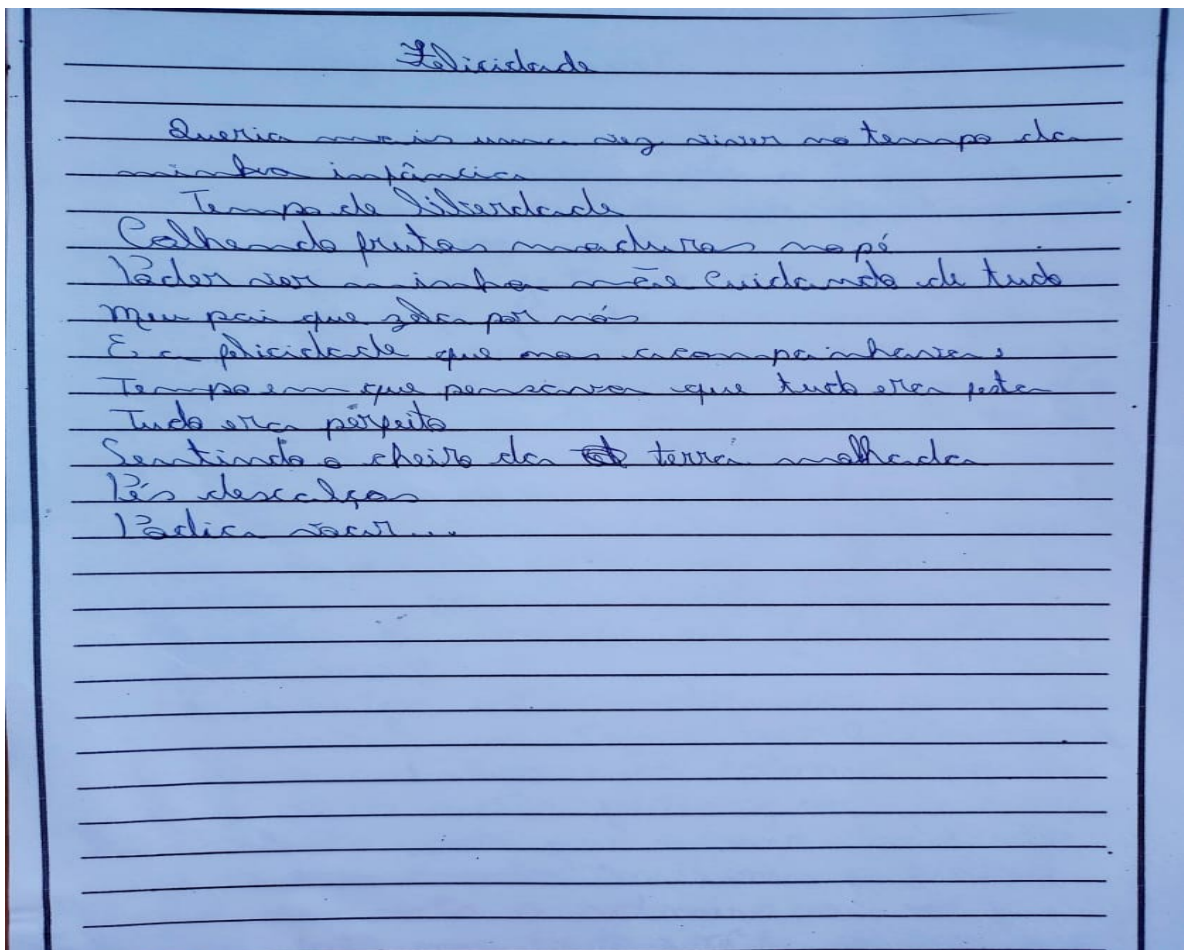 Felicidade
Queria mais uma vez viver no tempo da
minha infância
Tempo de liberdade
Colhendo frutas maduras no pé
Poder ver minha mãe cuidando de tudo
Meu pai que zela por nós
E a felicidade que nos acompainhava:
Tempo em que pensava que tudo era festa
Tudo era perfeito
Sentindo o cheiro da terra molhada
Pés descalços
Podia voar...